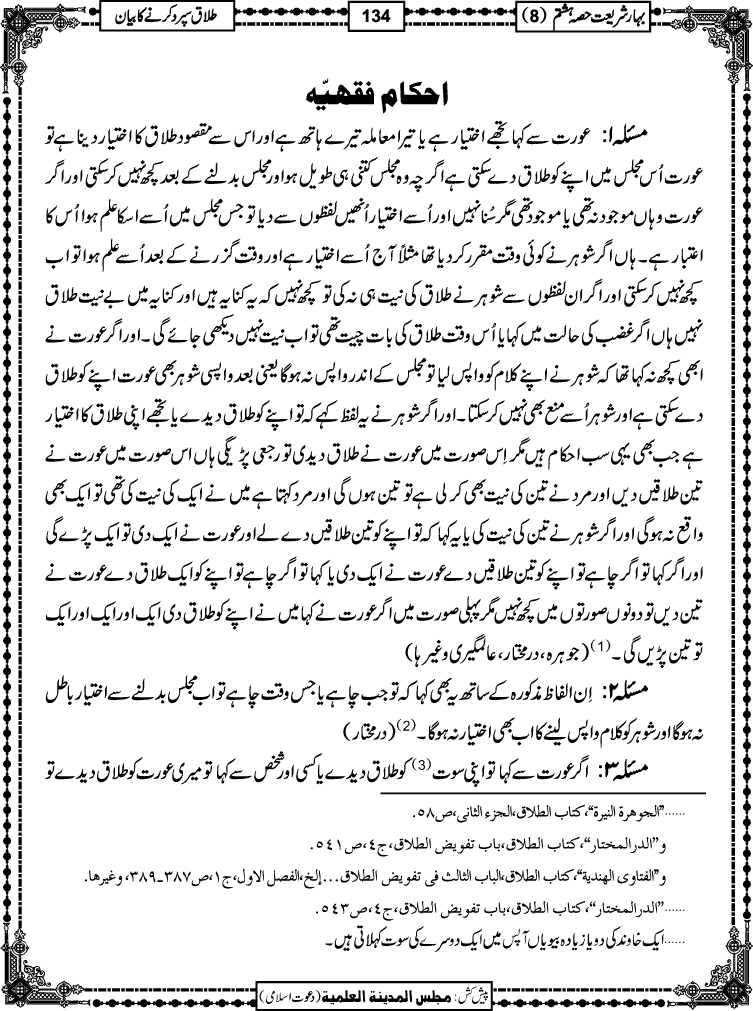 بہار شریعت حصہ ہشتم (8)
134
طلاق سپرد کرنے کا بیان
احکام فقہیّہ
مسئلہ ۱: عورت سے کہا تجھے اختیار ہے یا تیرا معاملہ تیرے ہاتھ ہے اور اس سے مقصود طلاق کا اختیار دینا ہے تو
عورت اُس مجلس میں اپنے کو طلاق دے سکتی ہے اگرچہ وہ مجلس کتنی ہی طویل ہو اور مجلس بدلنے کے بعد کچھ نہیں کرسکتی اور اگر
عورت وہاں موجود نہ تھی یا موجود تھی مگر سُنا نہیں اور اُسے اختیار اُنھیں لفظوں سے دیا تو جس مجلس میں اُسے اسکا علم ہوا اُس کا
اعتبار ہے۔ ہاں اگر شوہر نے کوئی وقت مقرر کر دیا تھا مثلاً آج اُسے اختیار ہے اور وقت گزرنے کے بعد اُسے علم ہوا تو اب
کچھ نہیں کرسکتی اور اگر ان لفظوں سے شوہر نے طلاق کی نیت ہی نہ کی تو کچھ نہیں کہ یہ کنایہ ہیں اور کنایہ میں بے نیت طلاق
نہیں ہاں اگر غضب کی حالت میں کہا یا اُس وقت طلاق کی بات چیت تھی تو اب نیت نہیں دیکھی جائے گی۔ اور اگر عورت نے
ابھی کچھ نہ کہا تھا کہ شوہر نے اپنے کلام کو واپس لیا تو مجلس کے اندر واپس نہ ہوگا یعنی بعد واپسی شوہر بھی عورت اپنے کو طلاق
دے سکتی ہے اور شوہر اُسے منع بھی نہیں کرسکتا۔ اور اگر شوہر نے یہ لفظ کہے کہ تو اپنے کو طلاق دیدے یا تجھے اپنی طلاق کا اختیار
ہے جب بھی یہی سب احکام ہیں مگر اِس صورت میں عورت نے طلاق دیدی تو رجعی پڑیگی ہاں اس صورت میں عورت نے
تین طلاقیں دیں اور مرد نے تین کی نیت بھی کر لی ہے تو تین ہوں گی اور مرد کہتا ہے میں نے ایک کی نیت کی تھی تو ایک بھی
واقع نہ ہوگی اور اگر شوہر نے تین کی نیت کی یا یہ کہا کہ تو اپنے کو تین طلاقیں دے لے اور عورت نے ایک دی تو ایک پڑے گی
اور اگر کہا تو اگر چاہے تو اپنے کو تین طلاقیں دے عورت نے ایک دی یا کہا تو اگر چاہے تو اپنے کو ایک طلاق دے عورت نے
تین دیں تو دونوں صورتوں میں کچھ نہیں مگر پہلی صورت میں اگر عورت نے کہا میں نے اپنے کو طلاق دی ایک اور ایک اور ایک
تو تین پڑیں گی۔(1) (جوہرہ، درمختار، عالمگیری وغیرہا)
مسئلہ ۲: اِن الفاظ مذکورہ کے ساتھ یہ بھی کہا کہ تو جب چاہے یا جس وقت چاہے تو اب مجلس بدلنے سے اختیار باطل
نہ ہوگا اور شوہر کو کلام واپس لینے کا اب بھی اختیار نہ ہوگا۔(2) (درمختار)
مسئلہ ۳: اگر عورت سے کہا تو اپنی سوت(3) کو طلاق دیدے یا کسی اور شخص سے کہا تو میری عورت کو طلاق دیدے تو
......”الجوهرة النيرة“، كتاب الطلاق، الجزء الثاني، ص٥٨.
و”الدرالمختار“، كتاب الطلاق، باب تفويض الطلاق، ج٤، ص٥٤١.
و”الفتاوى الهندية“، كتاب الطلاق، الباب الثالث في تفويض الطلاق...إلخ، الفصل الاول، ج١، ص٣٨٧ـ٣٨٩، وغيرها.
......”الدرالمختار“، كتاب الطلاق، باب تفويض الطلاق، ج٤، ص٥٤٣.
......ایک خاوند کی دو یا زیادہ بیویاں آپس میں ایک دوسرے کی سوت کہلاتی ہیں۔
پیش کش: مجلس المدينة العلمية (دعوت اسلامی)